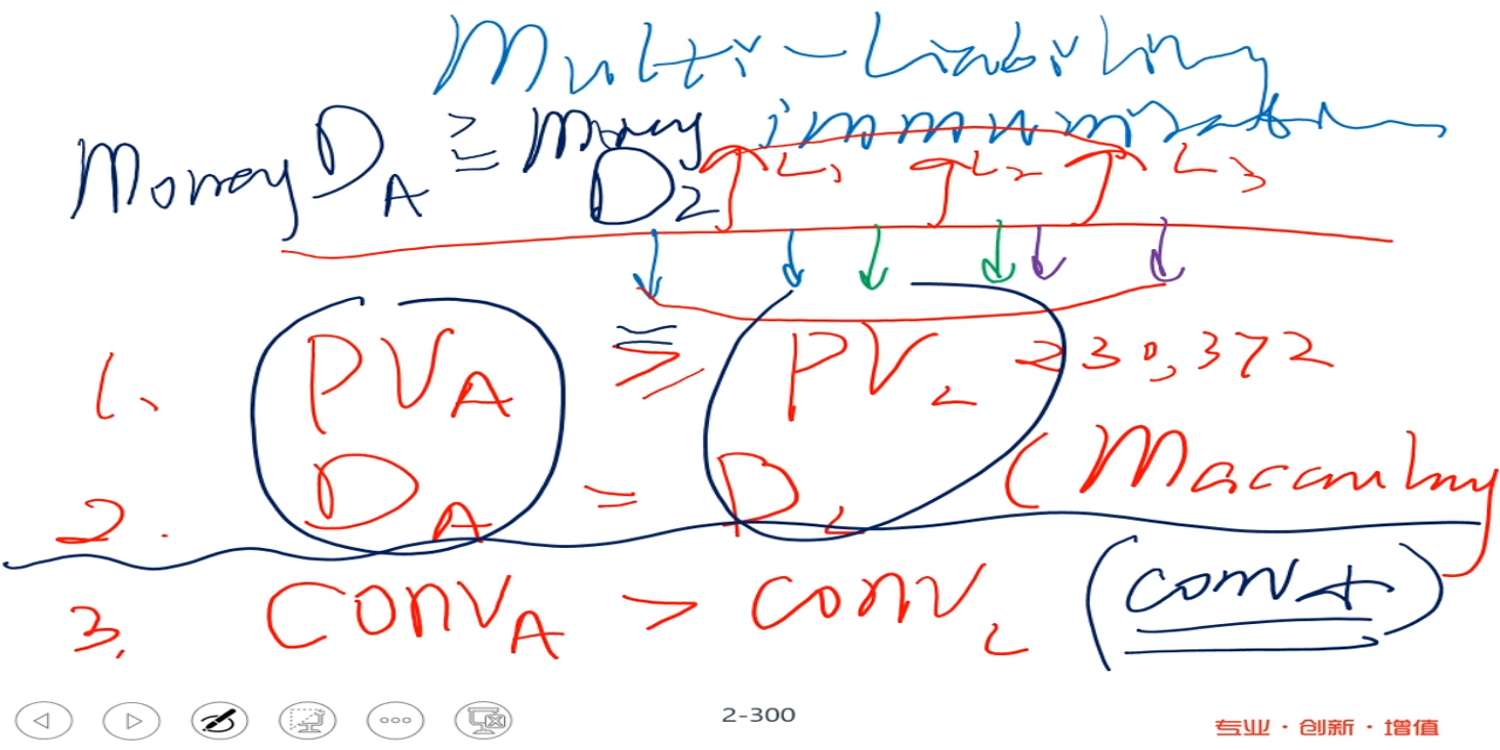 Multi-Liability
immunization
Money D_A ≧ money D_2
L1 L2 L3
1. PV_A ≧ PV_L 230,372
2. D_A = D_L (Macaulay
3. CONV_A > CONV_L (conv↓)
2-300
专业·创新·增值